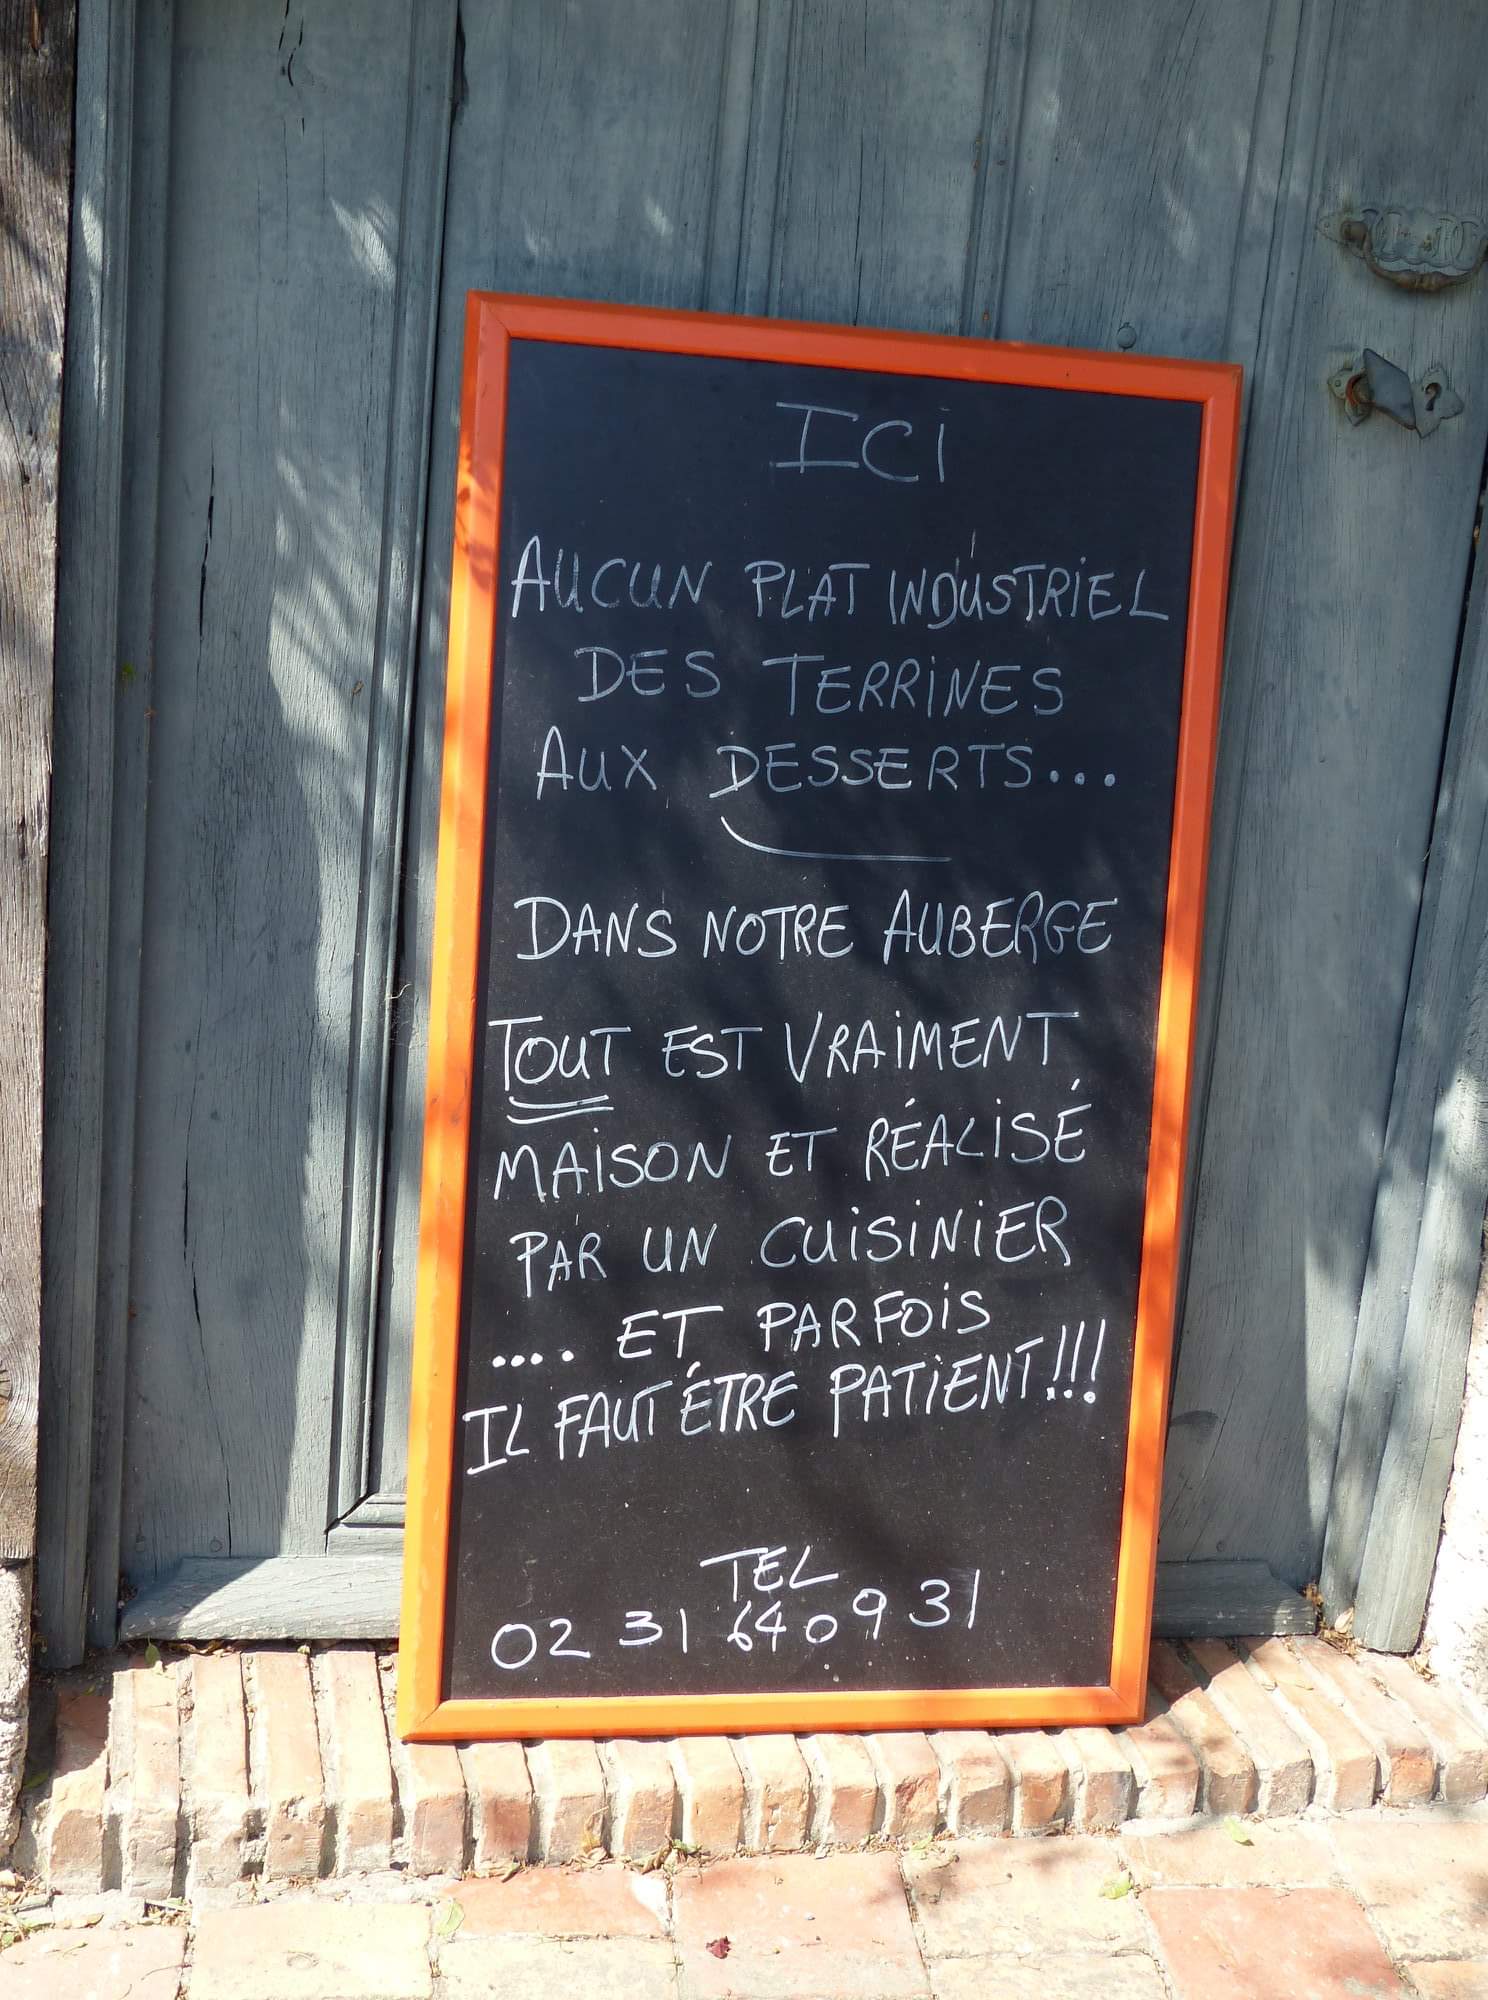 ICi
AUCUN PLAT INDUSTRIEL
DES TERRiNES
AUX DESSERTS...
DANS NOTRE AUBERGE
TOUT EST VRAiMENT
MAiSON ET RÉALiSÉ
PAR UN CUiSiNiER
.... ET PARFOiS
IL FAUT ÉTRE PATiENT!!!
TEL
02 31 64 09 31